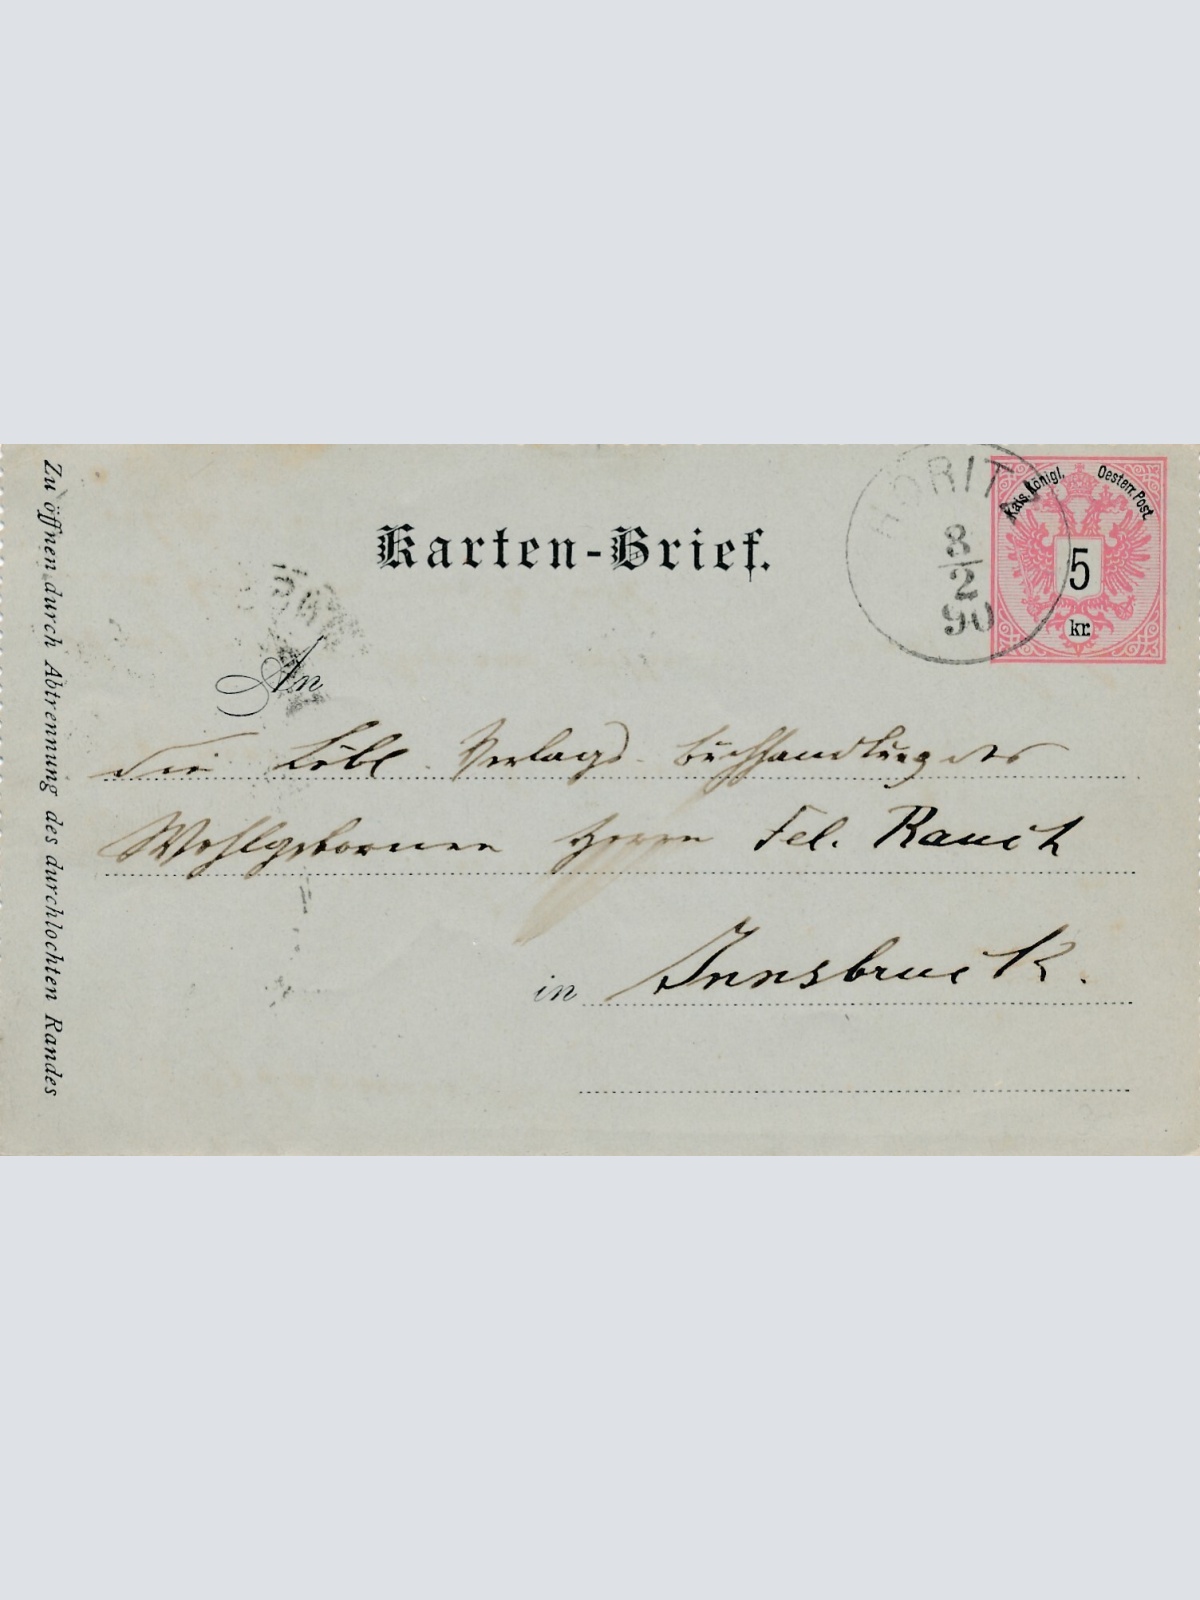 Karten-Brief.
HÖRITZ
8
2
90
Kais. Königl. Oesterr. Post.
5
kr.
An
die Löbl. Verlags-Buchhandlung des
Wohlgebornen Herrn Fel. Rauch
in Innsbruck.
Zu öffnen durch Abtrennung des durchlochten Randes